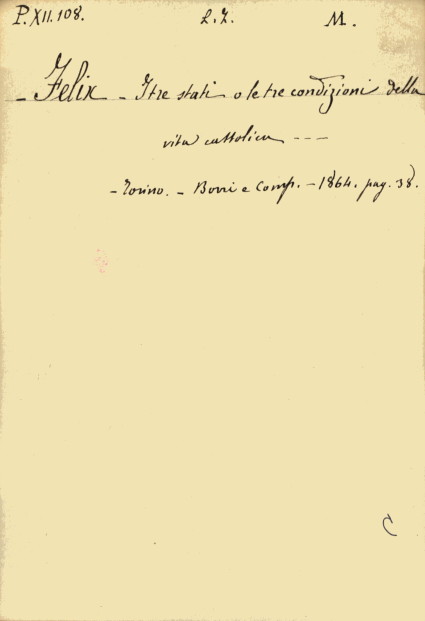 P.XII.108. L.Z. M.
- Felix - I tre stati o le tre condizioni della
vita cattolica ---
- Torino. - Borri e Comp. - 1864. pag. 38.
C